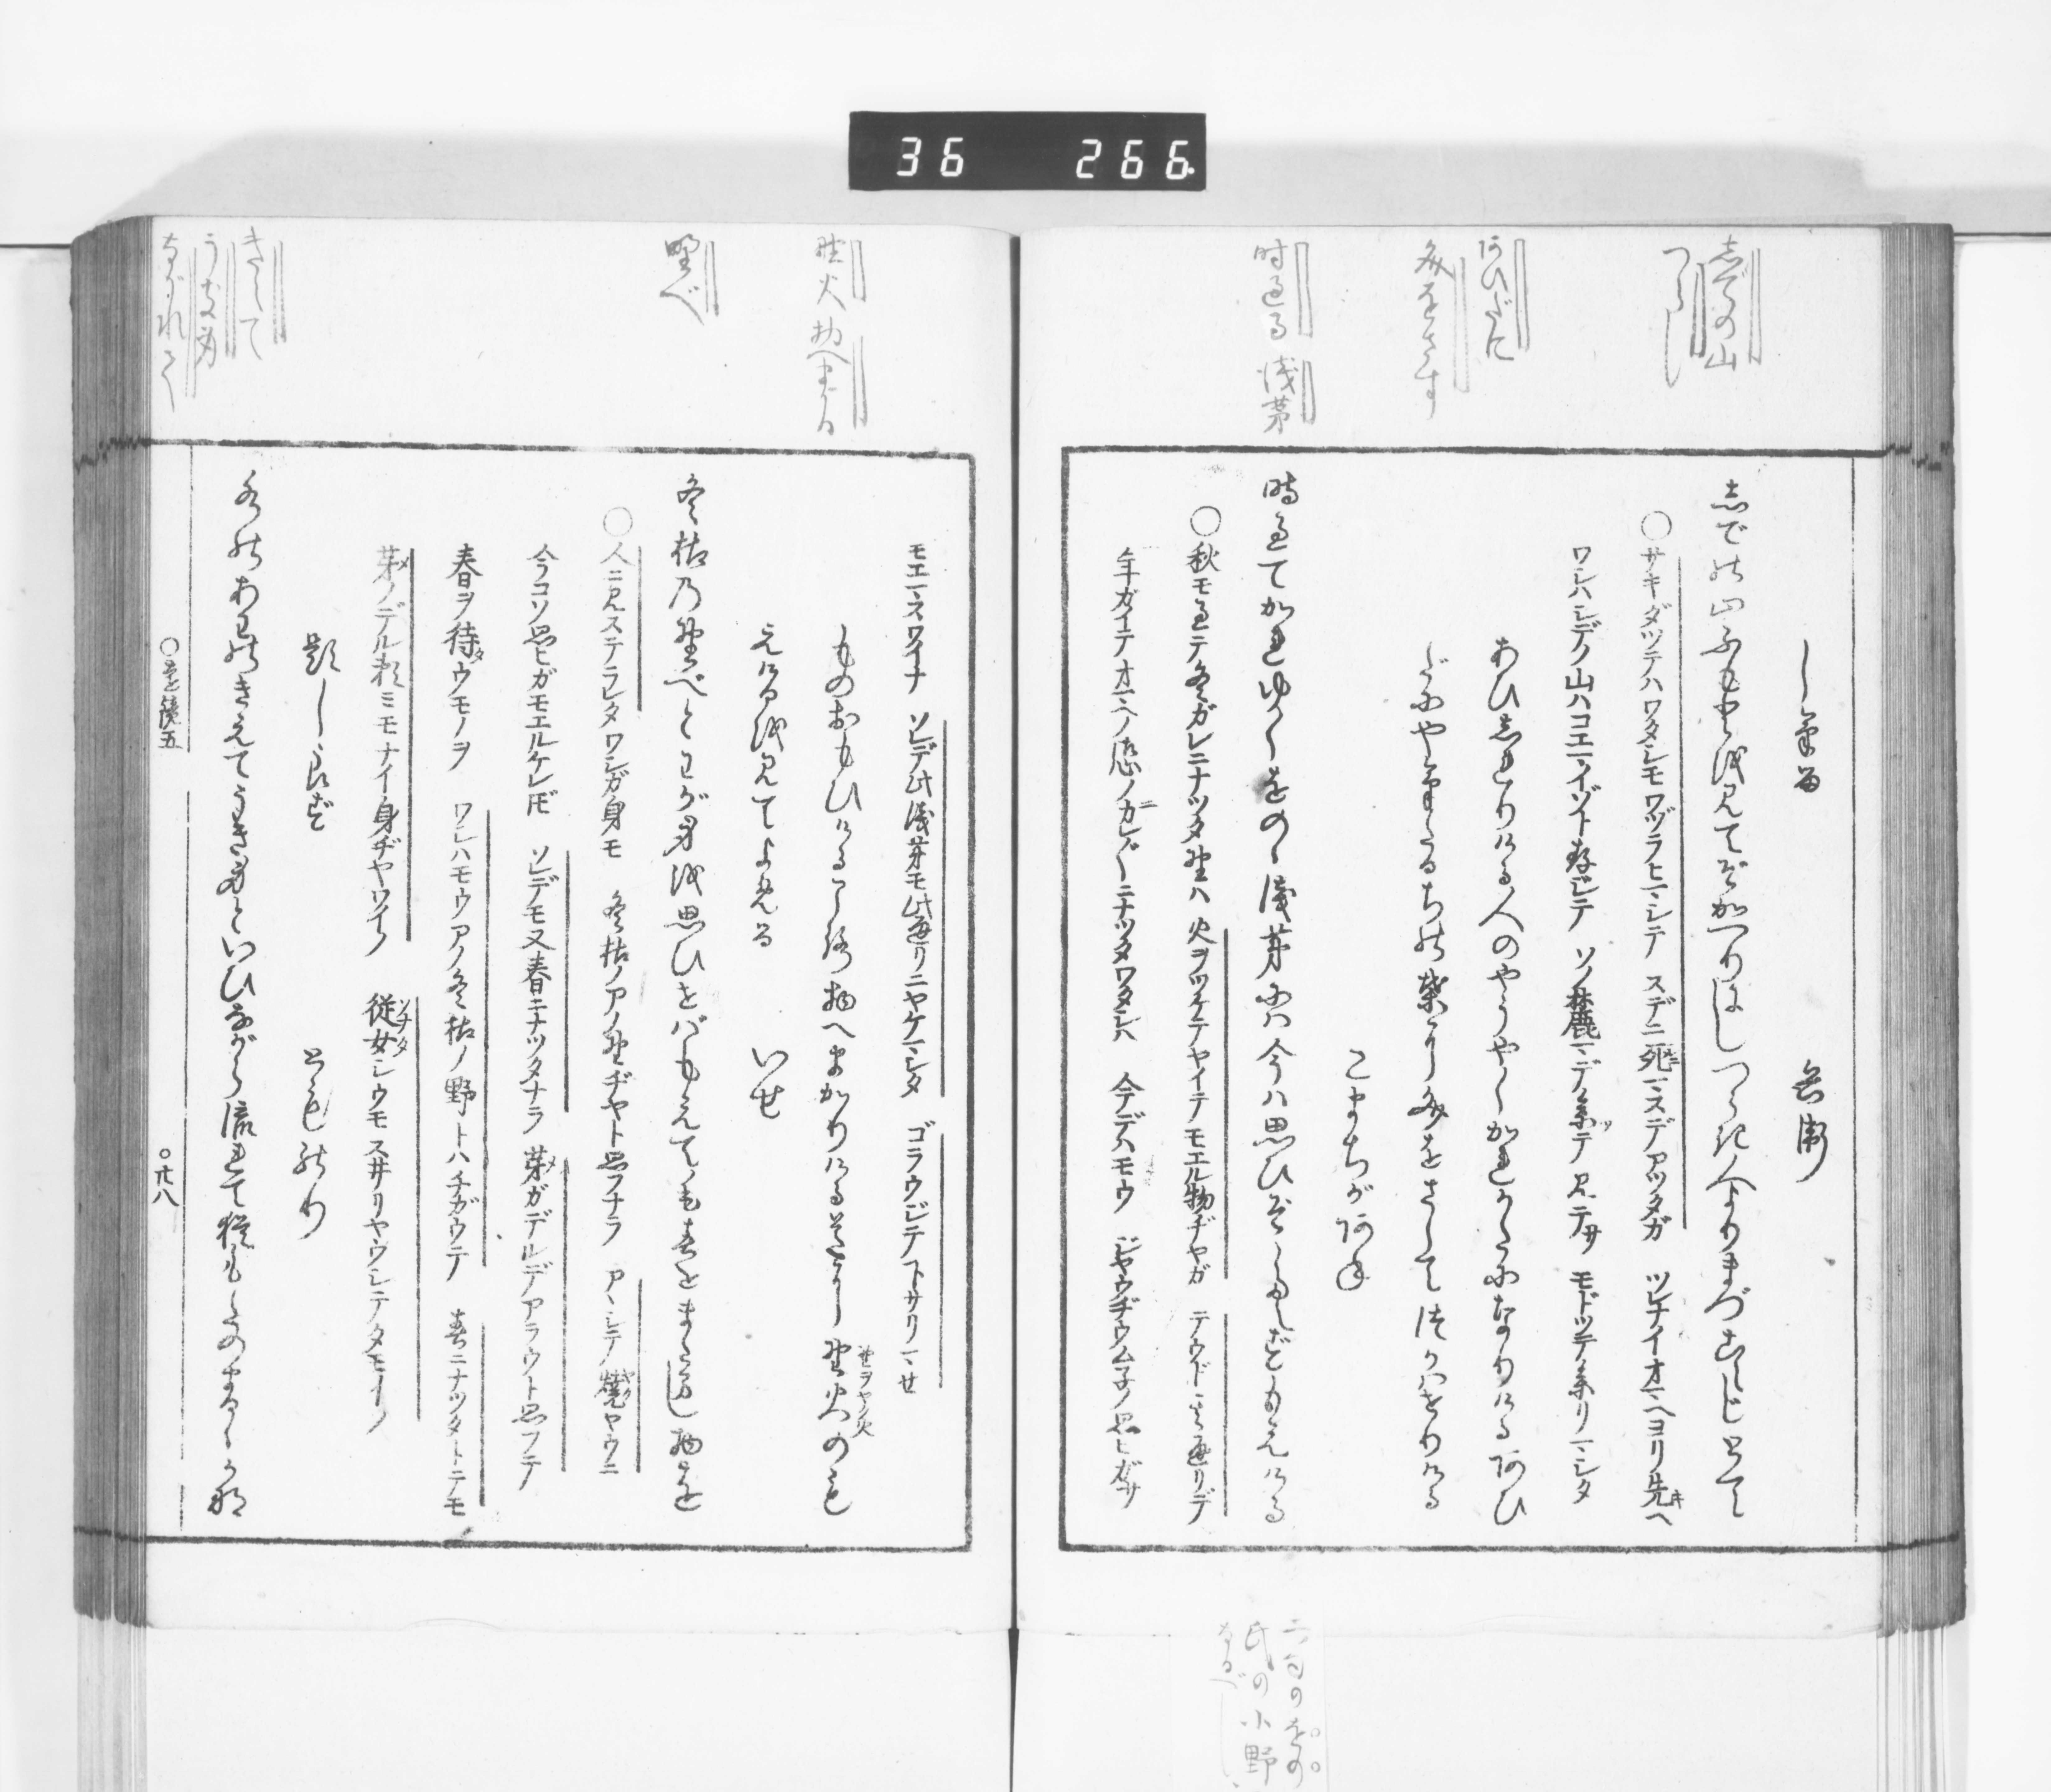 36 266
志での山
つらし
あひだに
文をさす
時過る 浅茅
しける 兵衛
志での山ふもとを見てぞかへりにしつらき人よりまづこえじとて
○サキダツテハワタシモワヅラヒマシテ スデニ死ニマスデアツタガ ツレナイオマヘヨリ先キヘ
ワシハシデノ山ハコエマイゾト存ジテ ソノ麓マデ参ツテ見テサ モドツテ参リマシタ
あひしれりける人のやうやくかれがたになりけるあひ
だにやけたるちの葉に文をさしてつかはせりける
こまちがあね
時過てかれゆくをのゝ浅茅には今は思ひぞたえずもえける
○秋モ過テ冬ガレニナツタ野ハ 火ヲツケテヤイテモエル物ヂヤガ テウド其通リデ
年ガイテオマヘノ恋ノカレ〴〵ニナツタワタシハ 今デハモウ ジヤウヂウムネノ思ヒガサ
二句のをの
氏の小野
なるべし
野火 物へまかる
野べ
きえて
うき身
ながれて
モエマスワイナ ソレデ此浅茅モ此通リニヤケマシタ ゴラウジテ下サリマセ
ものおもひけるころ物へまかりけるみちに野火のも
野ヲヤク火
えけるを見てよめる いせ
冬枯の野べとわが身を思ひせばもえても春をまたまし物を
○人ニ見ステラレタワシガ身モ 冬枯ノアノ野ヂヤト思フナラ アヽシテ焼ヤウニ
今コソ思ヒガモエルケレドモ ソレデモ又春ニナツタナラ 芽ガデルデアラウト思フテ
春ヲ待ウモノヲ ワシハモウアノ冬枯ノ野トハチガウテ 春ニナツタトテモ
芽ノデル頼ミモナイ身ヂヤワイノ 従女シウモスヰリヤウシテタモイノ
題しらず とものり
水のあわのきえてうき身といひながら流れて猶もたのまるゝかな
○遠鏡五 ○廿八